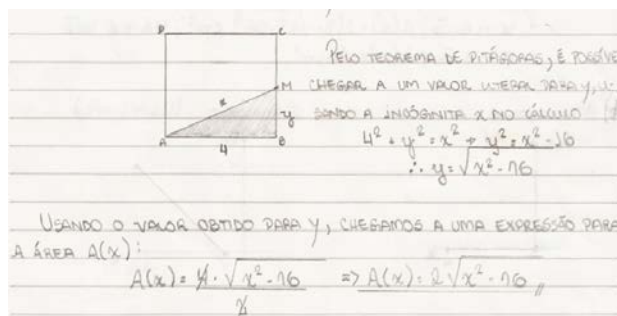 D C
PELO TEOREMA DE PITÁGORAS, É POSSÍVE
M
x
CHEGAR A UM VALOR LITERAL PARA y, U-
y
SANDO A INCÓGNITA x NO CÁLCULO
A 4 B
4² + y² = x² → y² = x² - 16
∴ y = √x² - 16
USANDO O VALOR OBTIDO PARA Y, CHEGAMOS A UMA EXPRESSÃO PARA
A ÁREA A(x):
A(x) = 4 · √x² - 16 / 2 => A(x) = 2√x² - 16 //